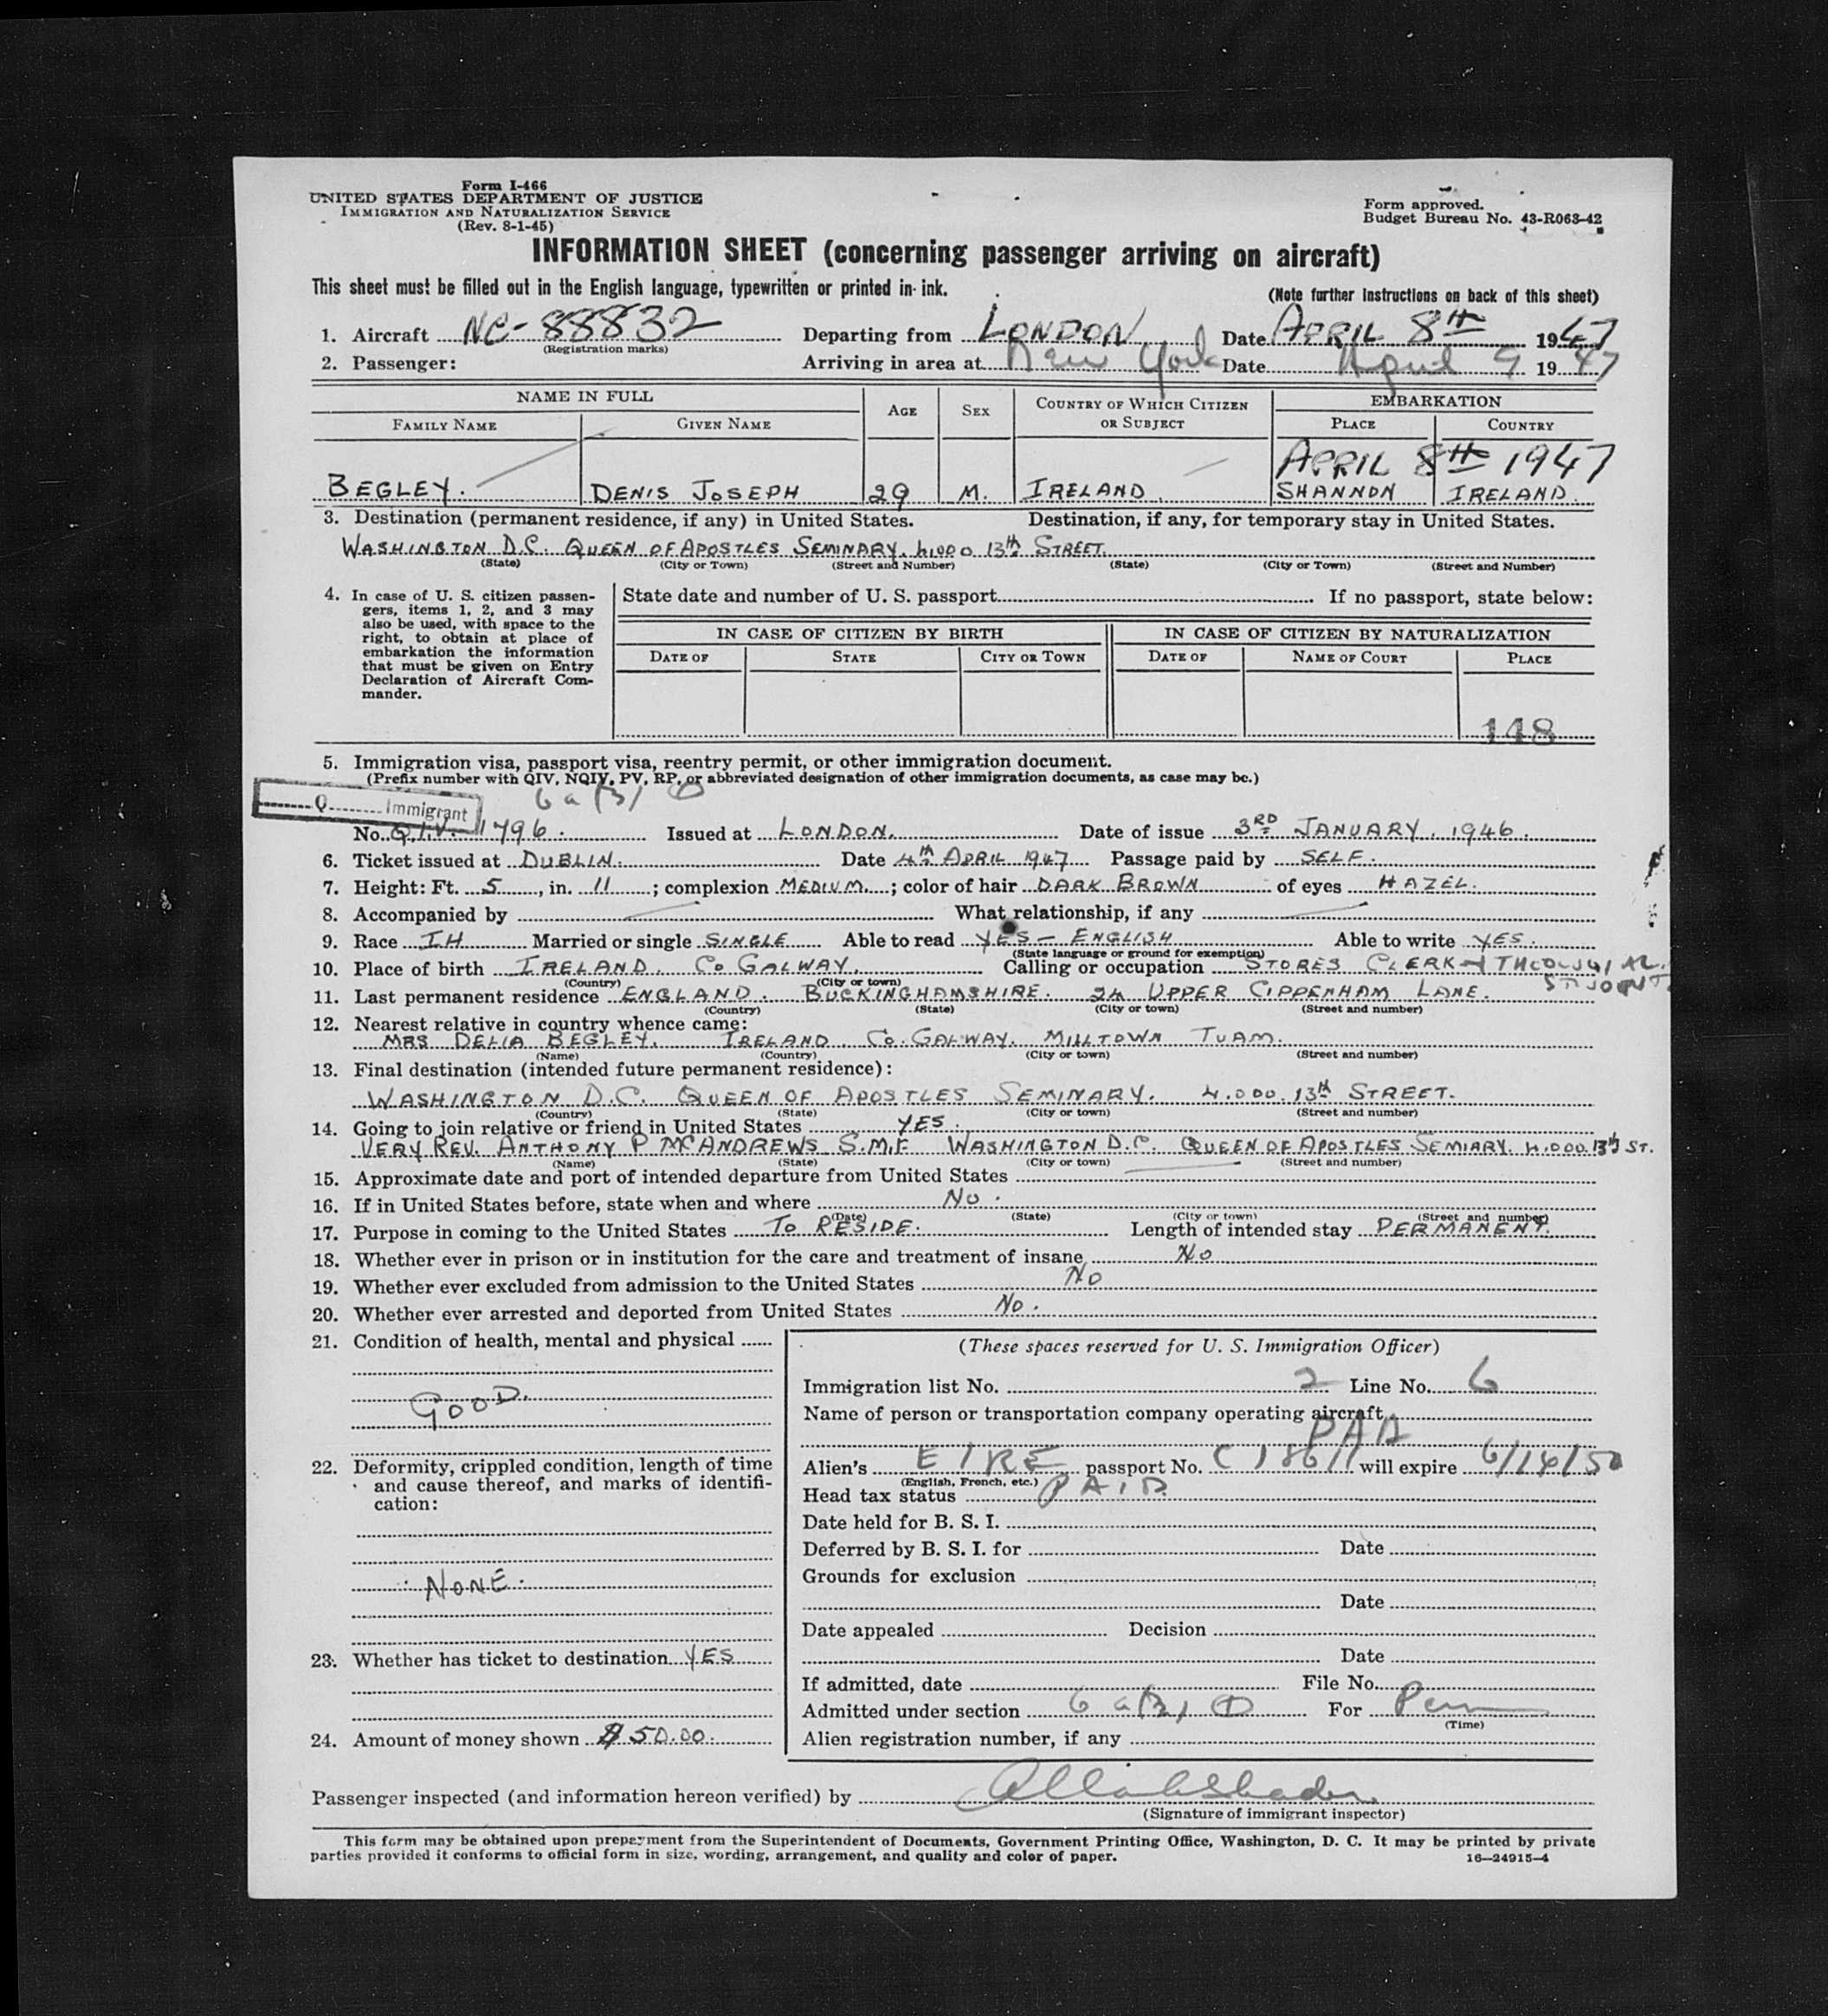 Form I-466
UNITED STATES DEPARTMENT OF JUSTICE
IMMIGRATION AND NATURALIZATION SERVICE
(Rev. 8-1-45)
Form approved.
Budget Bureau No. 43-R063-42
INFORMATION SHEET (concerning passenger arriving on aircraft)
This sheet must be filled out in the English language, typewritten or printed in ink.
(Note further instructions on back of this sheet)
1. Aircraft NC-88832 Departing from LONDON Date APRIL 8TH 1947
(Registration marks)
2. Passenger: Arriving in area at New York Date April 9 1947
NAME IN FULL AGE SEX COUNTRY OF WHICH CITIZEN OR SUBJECT EMBARKATION
FAMILY NAME GIVEN NAME PLACE COUNTRY
APRIL 8TH 1947
BEGLEY. DENIS JOSEPH 29 M. IRELAND. SHANNON IRELAND.
3. Destination (permanent residence, if any) in United States. Destination, if any, for temporary stay in United States.
WASHINGTON D.C. QUEEN OF APOSTLES SEMINARY. 4000 13th STREET.
(State) (City or Town) (Street and Number) (State) (City or Town) (Street and Number)
4. In case of U. S. citizen passen-
gers, items 1, 2, and 3 may
also be used, with space to the
right, to obtain at place of
embarkation the information
that must be given on Entry
Declaration of Aircraft Com-
mander.
State date and number of U. S. passport If no passport, state below:
IN CASE OF CITIZEN BY BIRTH IN CASE OF CITIZEN BY NATURALIZATION
DATE OF STATE CITY OR TOWN DATE OF NAME OF COURT PLACE
148
5. Immigration visa, passport visa, reentry permit, or other immigration document.
(Prefix number with QIV, NQIV, PV, RP, or abbreviated designation of other immigration documents, as case may be.)
Q Immigrant
6 a (3) 1
No. Q.I.V. 1796. Issued at LONDON. Date of issue 3RD JANUARY. 1946.
6. Ticket issued at DUBLIN. Date 4th APRIL 1947 Passage paid by SELF.
7. Height: Ft. 5, in. 11; complexion MEDIUM.; color of hair DARK BROWN of eyes HAZEL.
8. Accompanied by What relationship, if any
9. Race IH Married or single SINGLE Able to read YES - ENGLISH Able to write YES.
(State language or ground for exemption)
10. Place of birth IRELAND. CO GALWAY. Calling or occupation STORES CLERK - THEOLOGICAL
(Country) (City or town)
11. Last permanent residence ENGLAND. BUCKINGHAMSHIRE. 24 UPPER CIPPENHAM LANE.
(Country) (State) (City or town) (Street and number)
12. Nearest relative in country whence came:
MRS DELIA BEGLEY. IRELAND. CO. GALWAY. MILLTOWN TUAM.
(Name) (Country) (City or town) (Street and number)
13. Final destination (intended future permanent residence):
WASHINGTON D.C. QUEEN OF APOSTLES SEMINARY. 4.000. 13th STREET.
(Country) (State) (City or town) (Street and number)
14. Going to join relative or friend in United States YES.
VERY REV. ANTHONY P MCANDREWS S.M.F. WASHINGTON D.C. QUEEN OF APOSTLES SEMIARY. 4.000. 13th ST.
(Name) (State) (City or town) (Street and number)
15. Approximate date and port of intended departure from United States
16. If in United States before, state when and where No.
(Date) (State) (City or town) (Street and number)
17. Purpose in coming to the United States TO RESIDE. Length of intended stay PERMANENT.
18. Whether ever in prison or in institution for the care and treatment of insane No
19. Whether ever excluded from admission to the United States No
20. Whether ever arrested and deported from United States No.
21. Condition of health, mental and physical
GOOD.
22. Deformity, crippled condition, length of time
and cause thereof, and marks of identifi-
cation:
NONE.
23. Whether has ticket to destination YES
24. Amount of money shown $50.00.
(These spaces reserved for U. S. Immigration Officer)
Immigration list No. 2 Line No. 6
Name of person or transportation company operating aircraft
PAA
Alien's EIRE passport No. C 18611 will expire 6/14/50
(English, French, etc.)
Head tax status PAID
Date held for B. S. I.
Deferred by B. S. I. for Date
Grounds for exclusion
Date
Date appealed Decision
Date
If admitted, date File No.
Admitted under section 6 a(3) 1 For Perm
(Time)
Alien registration number, if any
Passenger inspected (and information hereon verified) by
(Signature of immigrant inspector)
This form may be obtained upon prepayment from the Superintendent of Documents, Government Printing Office, Washington, D. C. It may be printed by private
parties provided it conforms to official form in size, wording, arrangement, and quality and color of paper. 16—24915-4